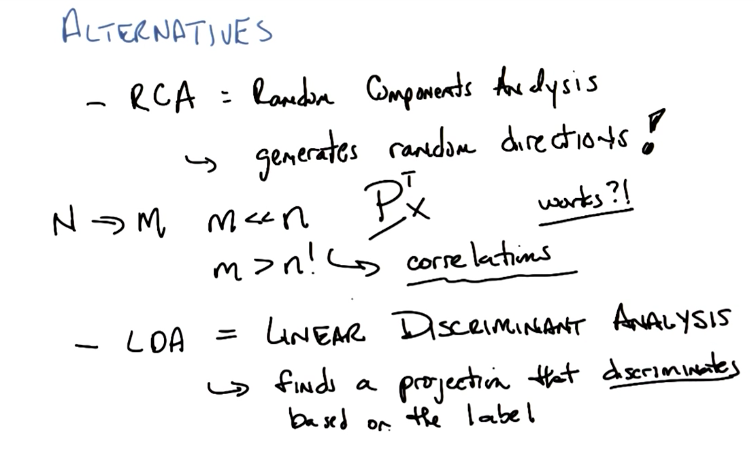 ALTERNATIVES
- RCA = Random Components Analysis
↳ generates random directions!
N ⇒ M m << n Pᵀx works?!
m > n! ↳ correlations
- LDA = LINEAR DISCRIMINANT ANALYSIS
↳ finds a projection that discriminates
based on the label